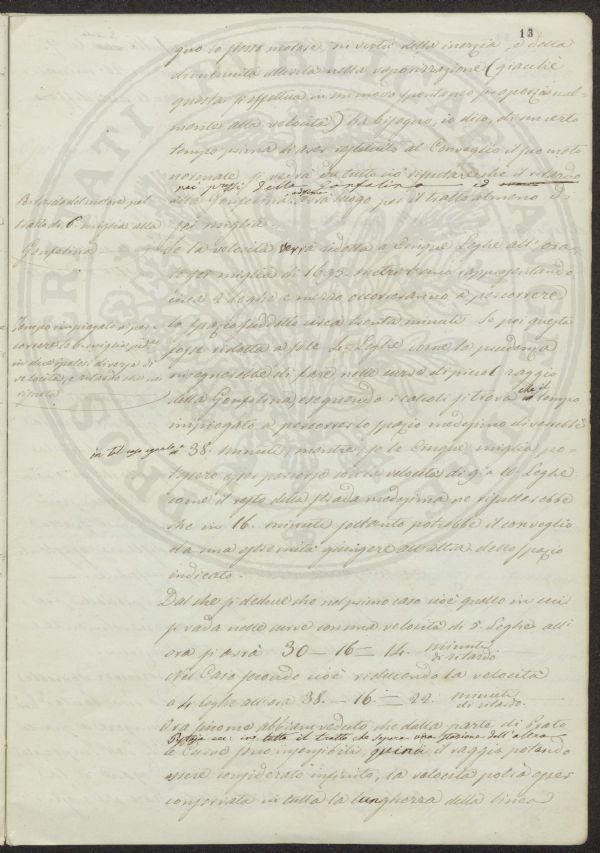 13
quo lo stesso motore, in virtù della inerzia, e della
diminuita attività nella vaporizzazione (giacchè
questa si effettua in un nuovo sperimento proporzional-
mente alla velocità) ha bisogno, io dico, di un certo
tempo prima di aver restituito al Convoglio il suo moto
normale si vedrà da tutto ciò risultare che il ritardo
nei pressi della Gonfolina ed
alla Gonfolina avrà luogo per il tratto almeno di
sei miglia.
Ritardo del motore nel
tratto di 6 miglia alla
Gonfolina
Se la velocità verrà ridotta a Cinque Leghe all'ora
le sei miglia di 1653 metri l'una rappresentando
circa 2 leghe e mezzo occorreranno a percorrere
lo spazio suddetto circa trenta minuti. Se poi questa
fosse ridotta a sole 4 Leghe come la prudenza
insegnerebbe di fare nelle curve di piccol raggio
della Gonfolina, eseguendo i calcoli si trova che il tempo
impiegato a percorrere lo spazio medesimo diverrebbe
Tempo impiegato a per-
correre le 6 miglia sud.e
in due ipotesi diverse di
velocità, e ritardo che ne
risulta
in tal caso eguale a
38. minuti, mentre se le Cinque miglia po-
tessero esser percorse con la velocità di 9 a 10 Leghe
come il resto della strada medesima ne risulterebbe
che in 16. minuti soltanto potrebbe il convoglio
da una estremità giungere all'altra dello spazio
indicato.
Dal che si deduce che nel primo caso cioè quello in cui
si vada nelle curve con una velocità di 5. Leghe all'
ora si avrà 30 — 16 = 14. minuti di ritardo
Nel Caso secondo cioè riducendo la velocità
a 4 leghe all'ora 38. — 16 = 22 minuti di ritardo.
Ora siccome abbiam veduto che dalla parte di Prato
Pistoja ecc. in tutto il tratto che separa una stazione dall'altra
le Curve sono insensibili, quindi il raggio potendo
essere considerato infinito, la velocità potrà esser
conservata in tutta la lunghezza della linea